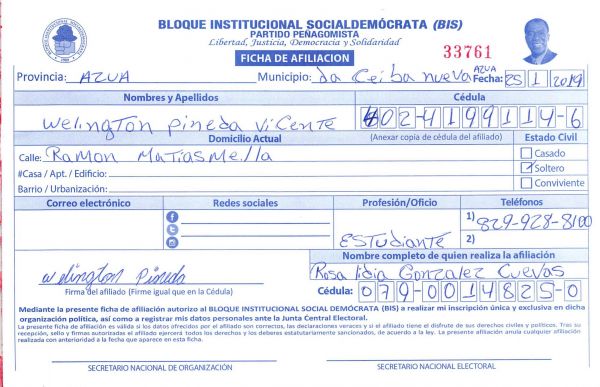 BLOQUE INSTITUCIONAL SOCIALDEMÓCRATA (BIS)
PARTIDO PEÑAGOMISTA
Libertad, Justicia, Democracia y Solidaridad
FICHA DE AFILIACION
33761
Provincia: AZUA Municipio: La Ceiba nueva AZUA Fecha: 25 1 2019
Nombres y Apellidos Cédula
Welington Pineda Vicente 402-4199114-6
Domicilio Actual (Anexar copia de cédula del afiliado) Estado Civil
Calle: Ramon Matias Mella Casado
#Casa / Apt. / Edificio: Soltero
Barrio / Urbanización: Conviviente
Correo electrónico Redes sociales Profesión/Oficio Teléfonos
1) 829-928-8100
ESTudiante 2)
Nombre completo de quien realiza la afiliación
Welington Pineda Rosa Lidia Gonzalez Cuevas
Firma del afiliado (Firme igual que en la Cédula) Cédula: 079-0014825-0
Mediante la presente ficha de afiliación autorizo al BLOQUE INSTITUCIONAL SOCIAL DEMÓCRATA (BIS) a realizar mi inscripción única y exclusiva en dicha
organización política, así como a registrar mis datos personales ante la Junta Central Electoral.
La presente ficha de afiliación es válida si los datos ofrecidos por el afiliado son correctos, las declaraciones veraces y si el afiliado tiene el disfrute de sus derechos civiles y políticos. Tras su
recepción, sello y firmas autorizadas el afiliado ejercerá todos los derechos y los deberes estatutariamente sancionados, de acuerdo a la ley. La presente afiliación anula cualquier afiliación
realizada con anterioridad a la fecha que aparece en esta ficha.
SECRETARIO NACIONAL DE ORGANIZACIÓN SECRETARIO NACIONAL ELECTORAL